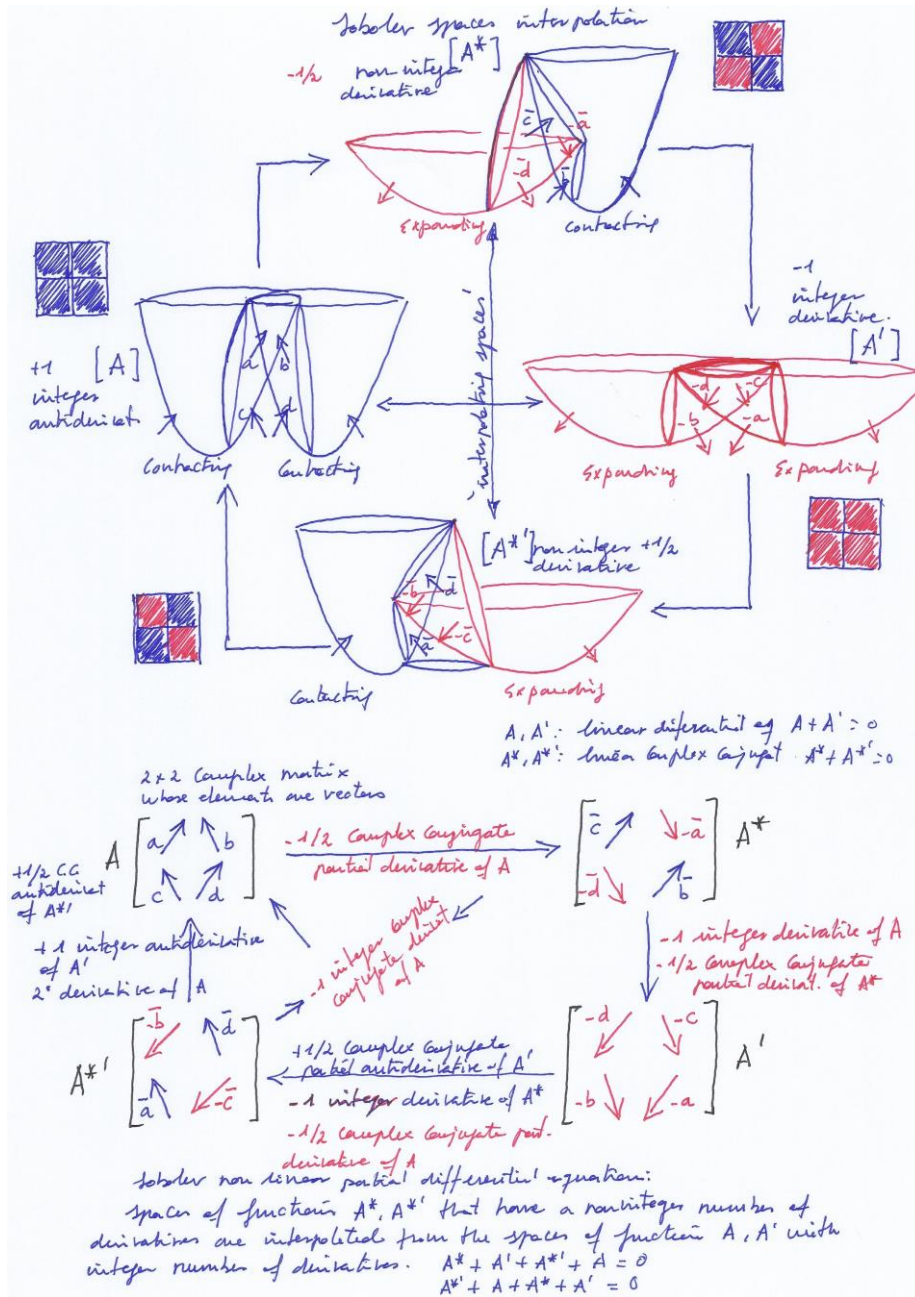 Soboler spaces interpolation
[A*]
-1/2 non-integer
derivative
c̄
-ā
-d̄
b̄
Expanding
Contracting
+1 [A]
integer
antiderivat.
a b
c d
Contracting Contracting
"interpolating spaces"
-1
integer
derivative.
[A']
-d -c
-b -a
Expanding Expanding
[A*'] non integer +1/2
derivative
-b̄ d̄
ā -c̄
Contracting Expanding
A, A': linear diferential eq A + A' = 0
A*, A*': linear complex conjugat A* + A*' = 0
2x2 Complex matrix
whose elements are vectors
A
a b
c d
-1/2 Complex Conjugate
partial derivative of A
c̄ -ā
-d̄ b̄
A*
+1/2 CC
antiderivat
of A*'
+1 integer antiderivative
of A'
2° derivative of A
-1 integer complex
conjugate derivat
of A
-1 integer derivative of A
-1/2 Complex Conjugate
partial derivat. of A*
A*'
-b̄ d̄
ā -c̄
+1/2 Complex Conjugate
partial antiderivative of A'
-1 integer derivative of A*
-1/2 Complex Conjugate part.
derivative of A
-d -c
-b -a
A'
Soboler non linear partial differential equation:
spaces of functions A*, A*' that have a noninteger number of
derivatives are interpolated from the spaces of function A, A' with
integer number of derivatives. A* + A' + A*' + A = 0
A*' + A + A* + A' = 0